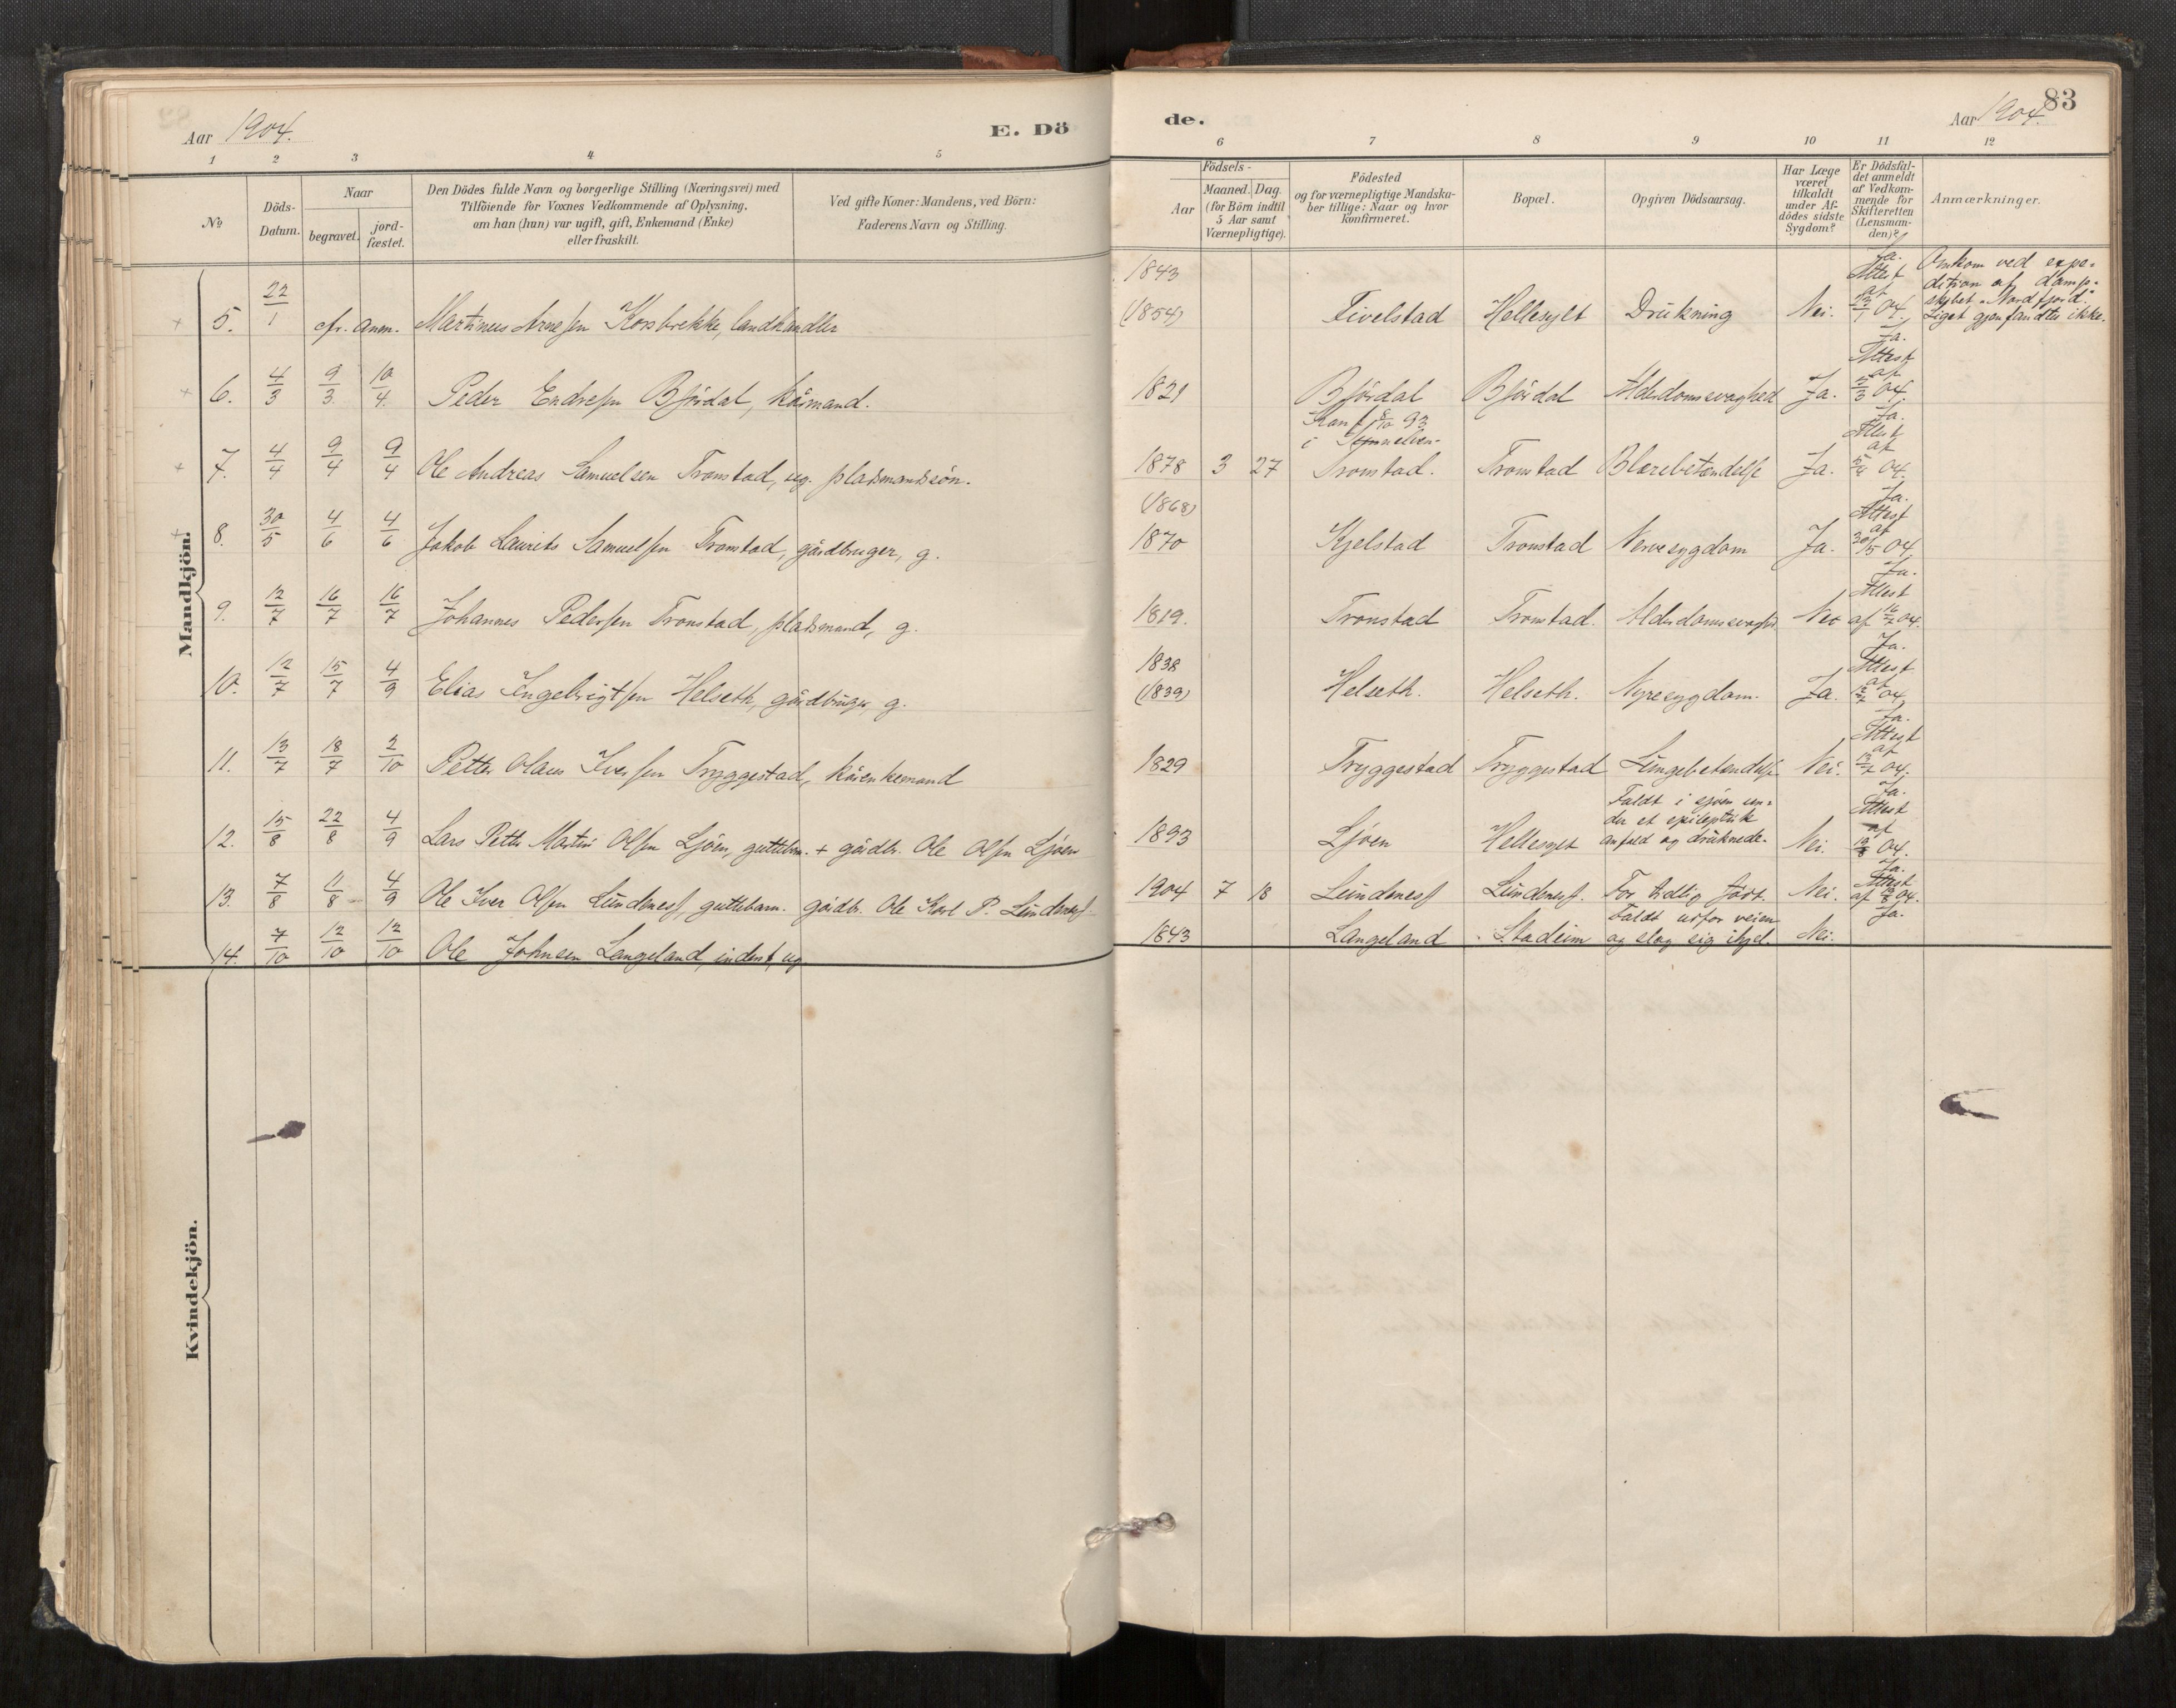 Aar 1904.
E. Dö
de.
Aar 1904.
83
1 2 3 4 5
6 7 8 9 10 11 12
№
Döds-
Datum.
Naar
begravet.
jord-
fæstet.
Den Dödes fulde Navn og borgerlige Stilling (Næringsvei) med
Tilföiende for Voxnes Vedkommende af Oplysning,
om han (hun) var ugift, gift, Enkemand (Enke)
eller fraskilt.
Ved gifte Koner: Mandens, ved Börn:
Faderens Navn og Stilling.
Födsels-
Aar
Maaned. Dag.
(for Börn indtil
5 Aar samt
Værnepligtige).
Födested
og for værnepligtige Mandska-
ber tillige: Naar og hvor
konfirmeret.
Bopæl.
Opgiven Dödsaarsag.
Har Læge
været
tilkaldt
under Af-
dödes sidste
Sygdom?
Er Dödsfal-
det anmeldt
af Vedkom-
mende for
Skifteretten
(Lensman-
den)?
Anmærkninger.
Mandkjön.
+ 5. 22/1 cfr. anm. Martinus Arnesen Korsbrekke, landhandler
1843
(1854) Fivelstad Hellesylt Drukning Nei.
Ja.
Attest
af
23/1 04.
Omkom ved expe-
dition af damp-
skibet "Nordfjord."
Liget gjenfandtes ikke.
+ 6. 4/3 9/3 10/4 Peder Endresen Björdal, kårmand.
1821 Björdal Björdal Alderdomssvaghed Ja.
Ja.
Attest
af
5/3 04.
+ 7. 4/4 9/4 9/4 Ole Andreas Samuelsen Tronstad, ug. pladsmandssön.
Konf. 8/10 93
i Sunnelven.
1878 3 27 Tronstad. Tronstad Blærebetændelse Ja.
Ja.
Attest
af
5/4 04.
+ 8. 30/5 4/6 4/6 Jakob Laurits Samuelsen Tronstad, gårdbruger, g.
(1868)
1870 Kjelstad Tronstad Nervesygdom Ja.
Ja.
Attest
af
30/5 04.
9. 12/7 16/7 16/7 Johannes Pedersen Tronstad, pladsmand, g.
1819. Tronstad Tronstad. Alderdomssvaghed Nei
Ja.
Attest
af 14/7 04.
10. 12/7 15/7 4/9 Elias Ingebrigtsen Helseth, gårdbruger, g.
1838
(1839) Helseth. Helseth. Nyresygdom. Ja.
Ja.
Attest
af
12/7 04.
11. 13/7 18/7 2/10 Petter Olaus Iversen Tryggestad, kårenkemand
1829 Tryggestad Tryggestad Lungebetændelse Nei.
Ja.
Attest
af
13/7 04.
12. 15/8 22/8 4/9 Lars Petter Martin Olsen Ljöen, guttebarn. + gårdbr. Ole Olsen Ljöen
1893 Ljöen Hellesylt
Faldt i sjöen un-
der et epileptisk
anfald og druknede. Nei.
Ja.
Attest
af
19/8 04.
13. 7/8 11/8 4/9 Ole Iver Olsen Lundeness, guttebarn. gårdbr. Ole Karl P. Lundeness
1904 7 18 Lundeness Lundeness. For tidlig födt. Nei.
Ja.
Attest
af 04.
14. 7/10 12/10 12/10 Ole Johnsen Langeland, inderst, ug.
1843 Langeland Stadeim
Faldt utfor veien
og slog sig ihjel. Nei.
Ja.
Kvindekjön.